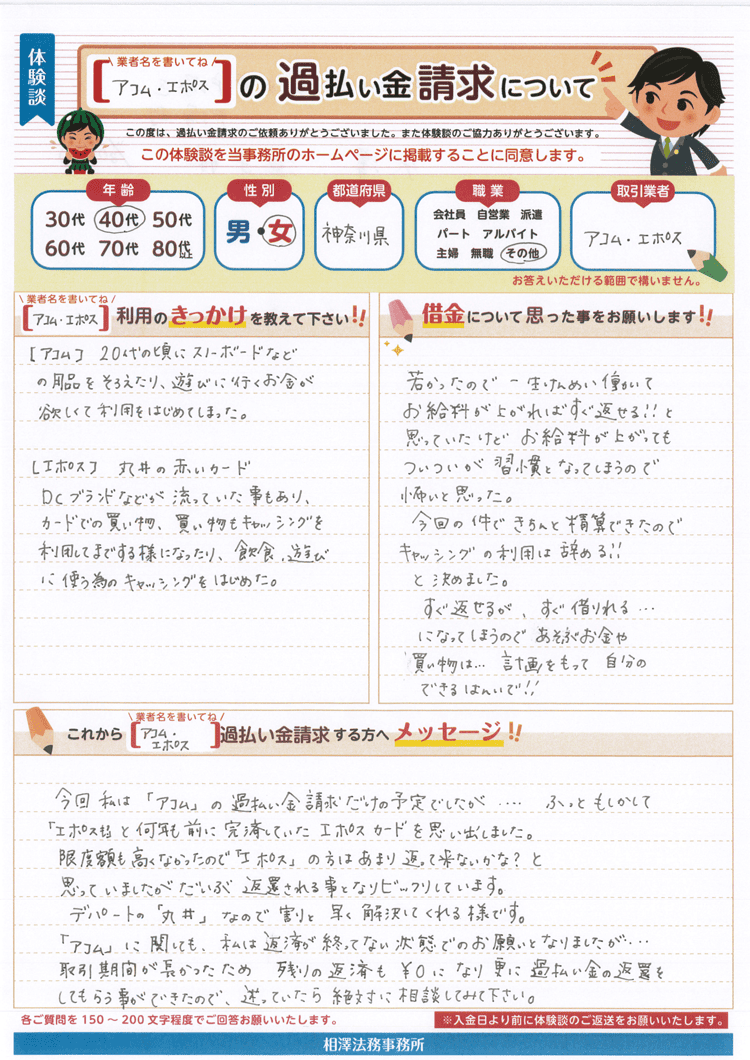 体験談
\ 業者名を書いてね /
[アコム・エポス]の過払い金請求について
この度は、過払い金請求のご依頼ありがとうございました。また体験談のご協力ありがとうございます。
この体験談を当事務所のホームページに掲載することに同意します。
年齢
30代 40代 50代
60代 70代 80代以上
性別
男・女
都道府県
神奈川県
職業
会社員 自営業 派遣
パート アルバイト
主婦 無職 その他
取引業者
アコム・エポス
お答えいただける範囲で構いません。
\ 業者名を書いてね /
[アコム・エポス]利用のきっかけを教えて下さい!!
[アコム] 20代の頃にスノーボードなど
の用品をそろえたり、遊びに行くお金が
欲しくて利用をはじめてしまった。
[エポス] 丸井の赤いカード
DCブランドなどが流っていた事もあり、
カードでの買い物、買い物もキャッシングを
利用してまでする様になったり、飲食、遊び
に使う為のキャッシングをはじめた。
借金について思った事をお願いします!!
若かったので一生けんめい働いて
お給料が上がればすぐ返せる!!と
思っていたけどお給料が上がっても
ついついが習慣となってしまうので
怖いと思った。
今回の件できちんと精算できたので
キャッシングの利用は辞める!!
と決めました。
すぐ返せるが、すぐ借りれる…
になってしまうのであそぶお金や
買い物は…計画をもって自分の
できるはんいで!!
\ 業者名を書いてね /
これから[アコム・エポス]過払い金請求する方へメッセージ!!
今回私は「アコム」の過払い金請求だけの予定でしたが‥‥ ふっともしかして
「エポスも」と何年も前に完済していたエポスカードを思い出しました。
限度額も高くなかったので「エポス」の方はあまり返って来ないかな?と
思っていましたがだいぶ返還される事となりビックリしています。
デパートの「丸井」なので割りと早く解決してくれる様です。
「アコム」に関しても、私は返済が終ってない状態でのお願いとなりましたが…
取引期間が長かったため 残りの返済も¥0になり更に過払い金の返還を
してもらう事ができたので、迷っていたら絶対に相談してみて下さい。
各ご質問を150～200文字程度でご回答お願いいたします。
※入金日より前に体験談のご返送をお願いいたします。
相澤法務事務所